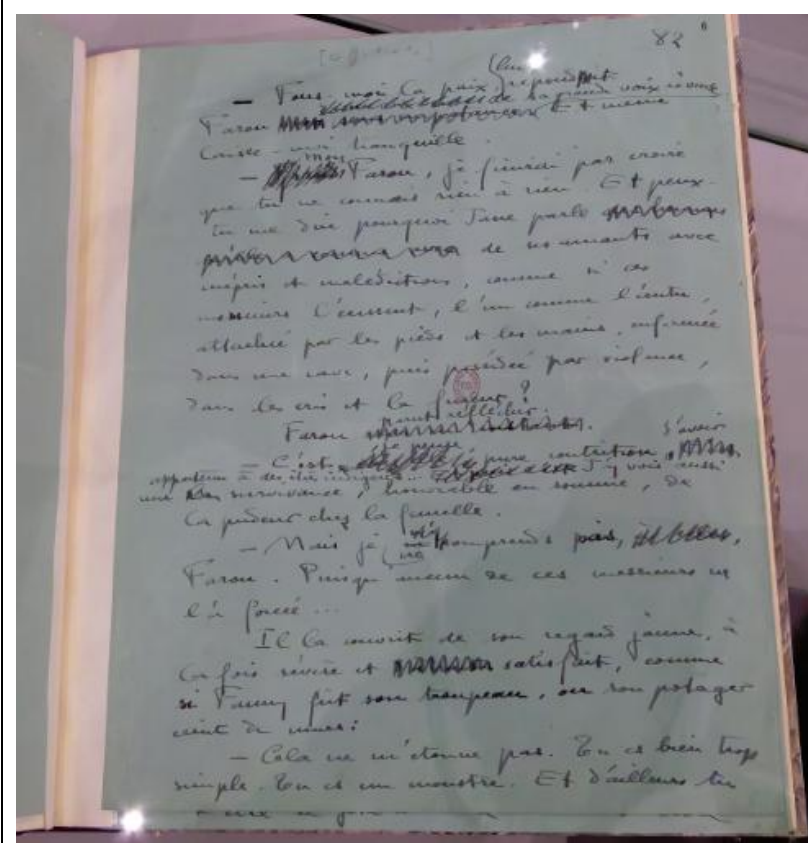 82
6
— Fous-moi la paix, lui répondit
Farou de sa grande voix rêveuse. Et même
laisse-moi tranquille.
— mon Farou, je finirai par croire
que tu ne connais rien à rien. Et peux-
tu me dire pourquoi Jane parle
de ses amants avec
mépris et malédictions, comme si ces
messieurs l'eussent, l'un comme l'autre,
attachée par les pieds et les mains, enfermée
dans une cave, puis possédée par violence,
dans les cris et la fureur ?
Farou parut réfléchir.
— C'est, je pense, pure contrition d'avoir
appartenu à des êtres indignes... J'y vois aussi
une survivance, honorable en somme, de
la pudeur chez la femelle.
— Mais je ne comprends pas,
Farou. Puisqu'aucun de ces messieurs ne
l'a forcée...
Il la couvrit de son regard jaune, à
la fois sévère et satisfait, comme
si Fanny fût son troupeau, ou son potager
ceint de murs :
— Cela ne m'étonne pas. Tu es bien trop
simple. Tu es un monstre. Et d'ailleurs tu